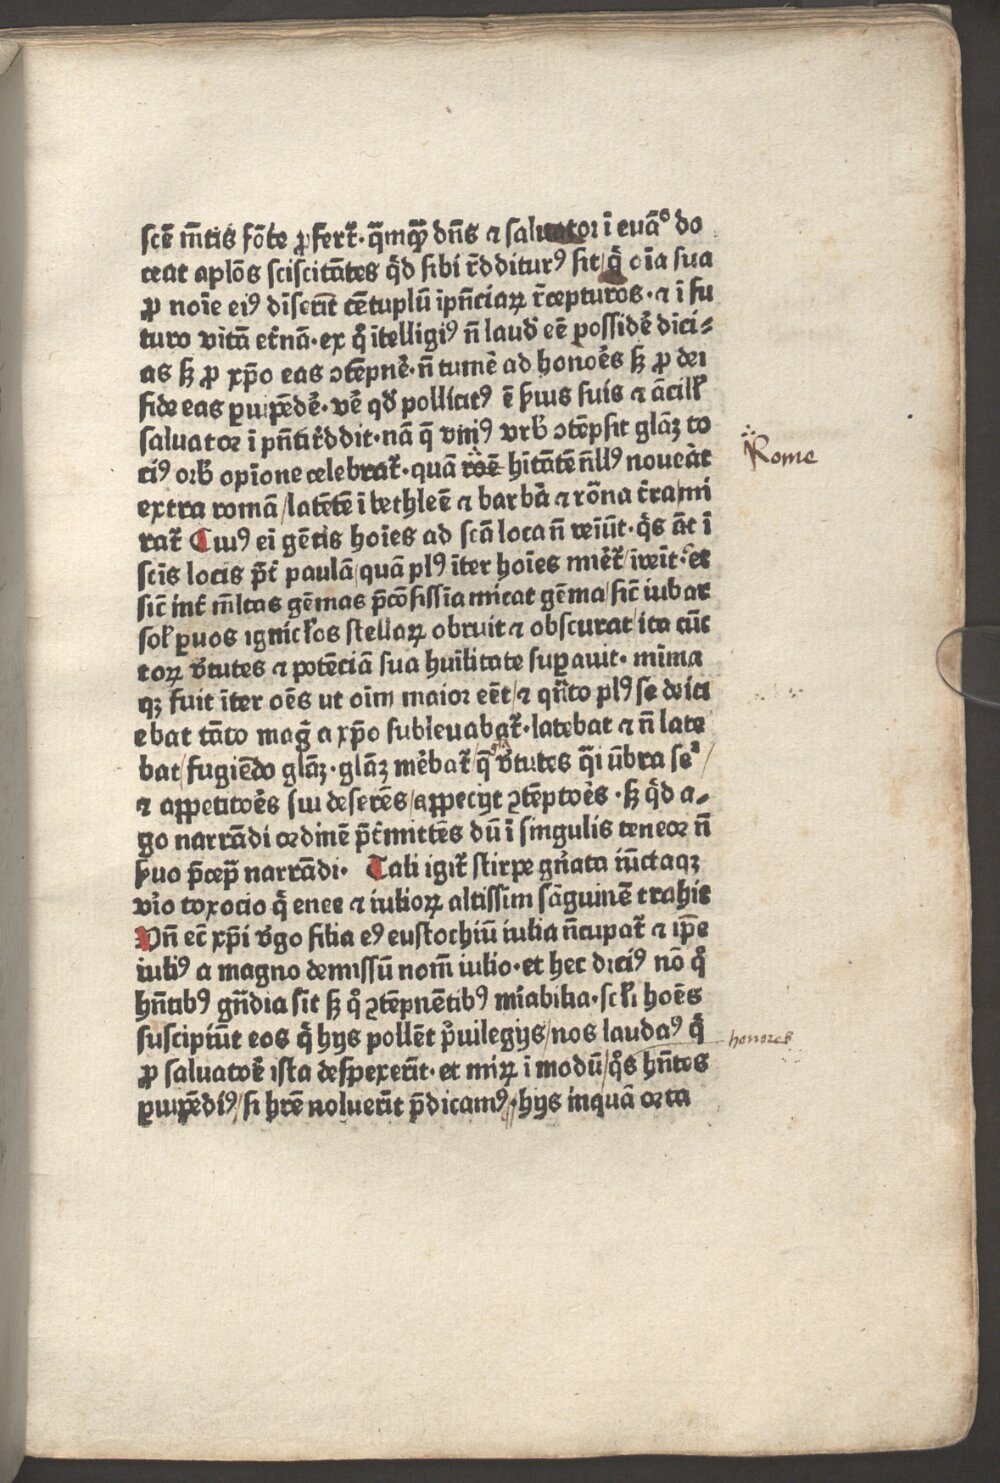 scē m̄tis fōte ꝓfert᷑· q̄mqꝫ dn̄s ⁊ saluator ī euā° do
ceat aplōs sciscitātes qd̓ sibi r̄dditurꝰ sit/q̓ oīa sua
ꝓ noīe eiꝰ dīserīt cētuplū īpn̄ciaꝝ r̄cepturos·⁊ ī fu
turo vitā et̄nā·ex q̓ ītelligiꝰ n̄ laud̓ eē possidē̓ dici⸗
as sꝫ ꝓ xp̄o eas ↄtēpnē̓·n̄ tumē̓ ad honoē̓s sꝫ ꝓ dei
fide eas ꝑuipēdē̓·vē̓ qd̓ pollicitꝰ ē ẜuis suis ⁊ ācill̓
saluator ī pn̄ti r̄ddit·nā q̄ vniꝰ vrb̓ ↄtēpsit glāꝫ to
ciꝰ orb̓ opīone celebrat᷑·quā roē hītātē n̄llꝰ noueàt
extra romā/latētē ī bethleē ⁊ barbā̓ ⁊ rōna t̓ra mi
rat᷑ Cuiꝰ ei̓ gētis hoīes ad scā loca n̄ veiūt·q̓s āt ī
scīs locis p̄t̓ paulā/quā plꝰ īter hoīes mirēt᷑/īveīt·et
sic̄ int̓ m̄ltas gēmas p̄cōsissīa micat gēma/sic̄ iubar
sol̓ ꝑuos ignicl̓os stellaꝝ obruit ⁊ obscurat/ita cūc
toꝝ v̓tutes ⁊ potēciā sua huīlitate suꝑauit· mīma
qꝫ fuit īter oēs ut oīm maior eēt/⁊ qn̄to plꝰ se deici
ebat tāto mag̓ a xp̄o subleuabat᷑·latebat ⁊ n̄ late
bat/fugiēdo glāꝫ·glāꝫ mē̓bat᷑/q̄ v̓tutes q̄i ūbra seq̓᷑/
⁊ appetitoē̓s sui deserēs/appecijt ↄtēptoē̓s·sꝫ qd̓ a⸗
go narrādi ordinē p̄t̓mittēs dū ī singulis teneor n̄
ẜuo p̄cep̄ narrādi· Tali igit᷑ stirpe gn̓ata iūctaqꝫ
vi̓o toxocio q̓ enee ⁊ iulioꝝ altissīm sāguinē trahit
Vn̄ ec̄ xp̄i v̓go filia eꝰ eustochiū iulia n̄cupat᷑ ⁊ ip̄e
iuliꝰ a magno demissū nom̄ iulio·et hec diciꝰ nō q̓
hn̄tibꝰ gn̄dia sīt sꝫ q̓ ↄtēpnētibꝰ mi̓abilia·scl̓i hoēs
suscipiūt eos q̓ hys pollēt p̓uilegijs/nos laudaꝰ q̓
ꝓ saluatoē̓ ista despexerīt·et miꝝ ī modū/q̓s hn̄tes
ꝑuipēdiꝰ/si hrē noluerīt p̄dicamꝰ·hys inquā orta
Rome
honores